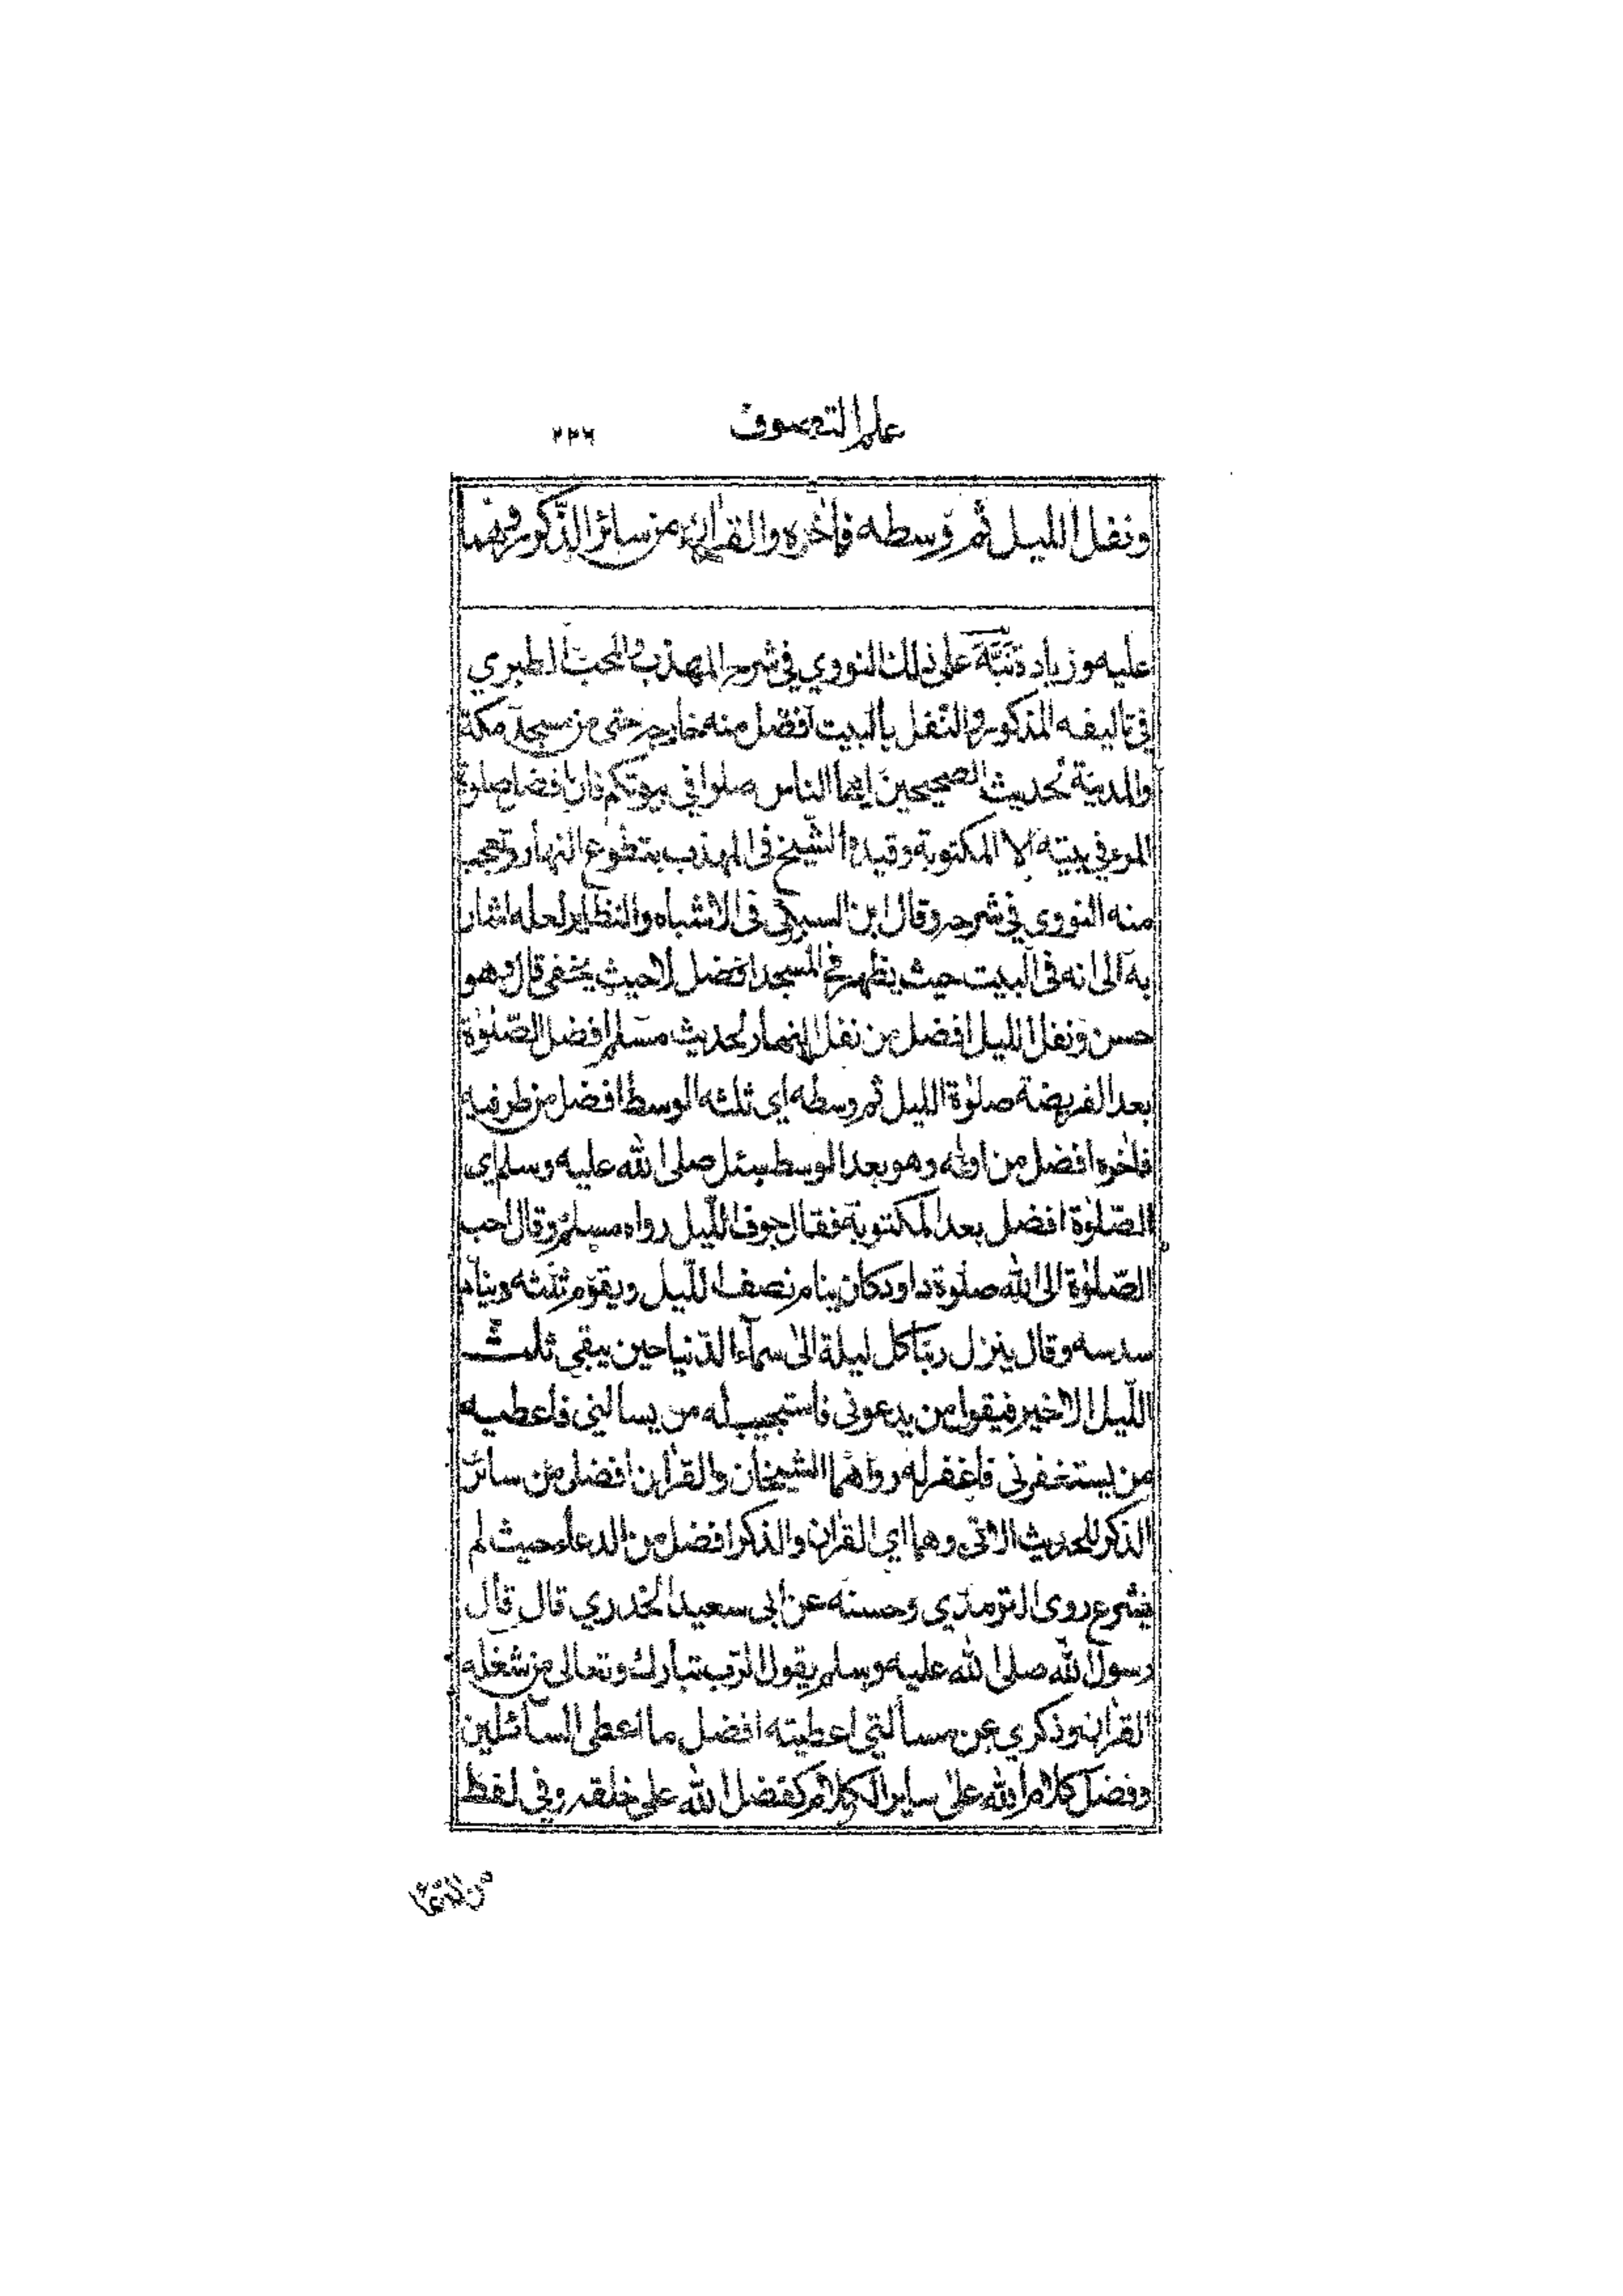 علم التصوف ٢٢٦
ونفل الليل ثم وسطه فأخره والقران من سائر الذكر وهما
عليه وزيادة نبه على ذلك النووي في شرح المهذب والمحب الطبري
في تاليفه المذكور والنفل بالبيت افضل منه خارجه حتى من مسجد مكة
والمدينة لحديث الصحيحين ايها الناس صلوا في بيوتكم فان افضل صلوة
المرء في بيته الا المكتوبة وقيده الشيخ في المهذب بتطوع النهار وتعجب
منه النووي في شرحه وقال ابن السبكي في الاشباه والنظاير لعله اشار
به الى انه في البيت حيث يظهر في المسجد افضل لا حيث يخفى قال وهو
حسن ونفل الليل افضل من نفل النهار لحديث مسلم افضل الصلوة
بعد الفريضة صلوة الليل ثم وسطه اي ثلثه الوسط افضل من طرفيه
فاخره افضل من اوله وهو بعد الوسط سئل صلى الله عليه وسلم اي
الصلوة افضل بعد المكتوبة فقال جوف الليل رواه مسلم وقال احب
الصلوة الى الله صلوة داود كان ينام نصف الليل ويقوم ثلثه وينام
سدسه وقال ينزل ربنا كل ليلة الى سماء الدنيا حين يبقى ثلث
الليل الاخير فيقول من يدعوني فاستجيب له من يسالني فاعطيه
من يستغفرني فاغفر له رواهما الشيخان والقران افضل من سائر
الذكر للحديث الاتي وهما اي القران والذكر افضل من الدعاء حيث لم
يشرع روى الترمذي وحسنه عن ابي سعيد الخدري قال قال
رسول الله صلى الله عليه وسلم يقول الرب تبارك وتعالى من شغله
القران وذكري عن مسألتي اعطيته افضل ما اعطى السائلين
وفضل كلام الله على ساير الكلام كفضل الله على خلقه وفي لفظ